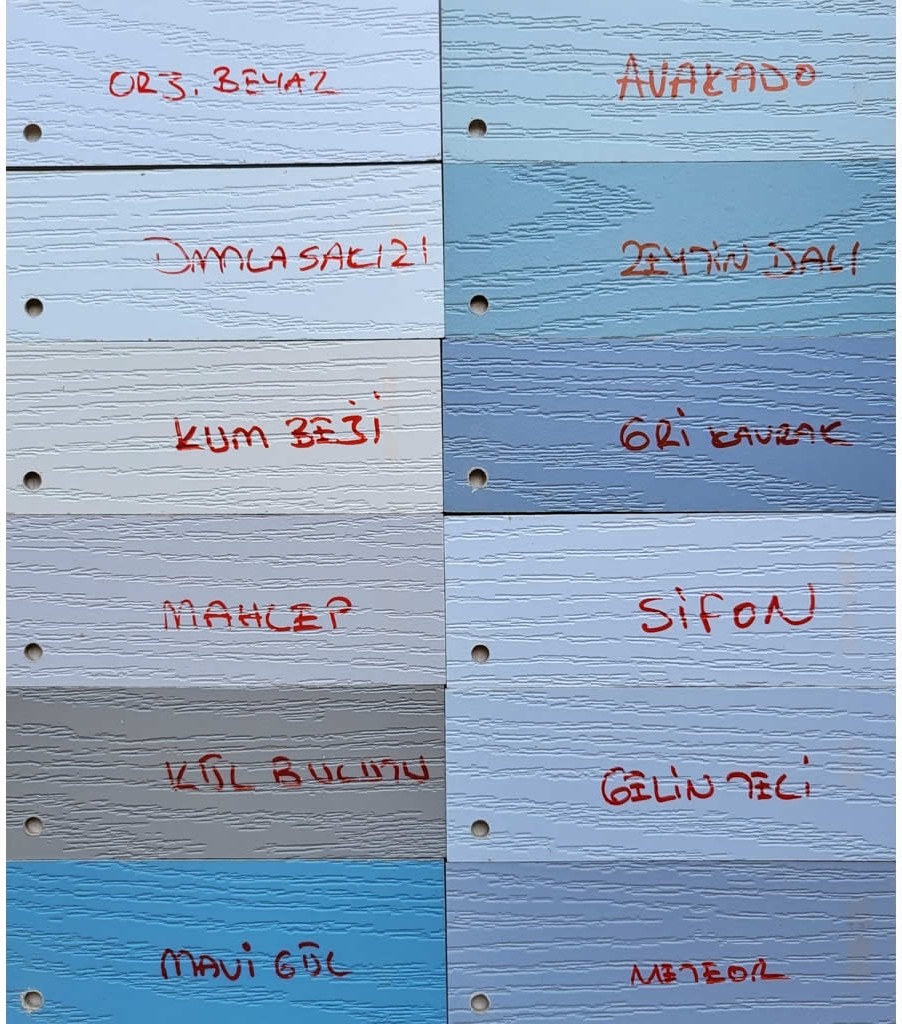 ORJ. BEYAZ
AVAKADO
DAMLA SAKIZI
ZEYTİN DALI
KUM BEJİ
GRİ KAVRAK
MAHLEP
SİFON
KÜL BULUTU
GELİN TELİ
MAVİ GÜL
METEOR